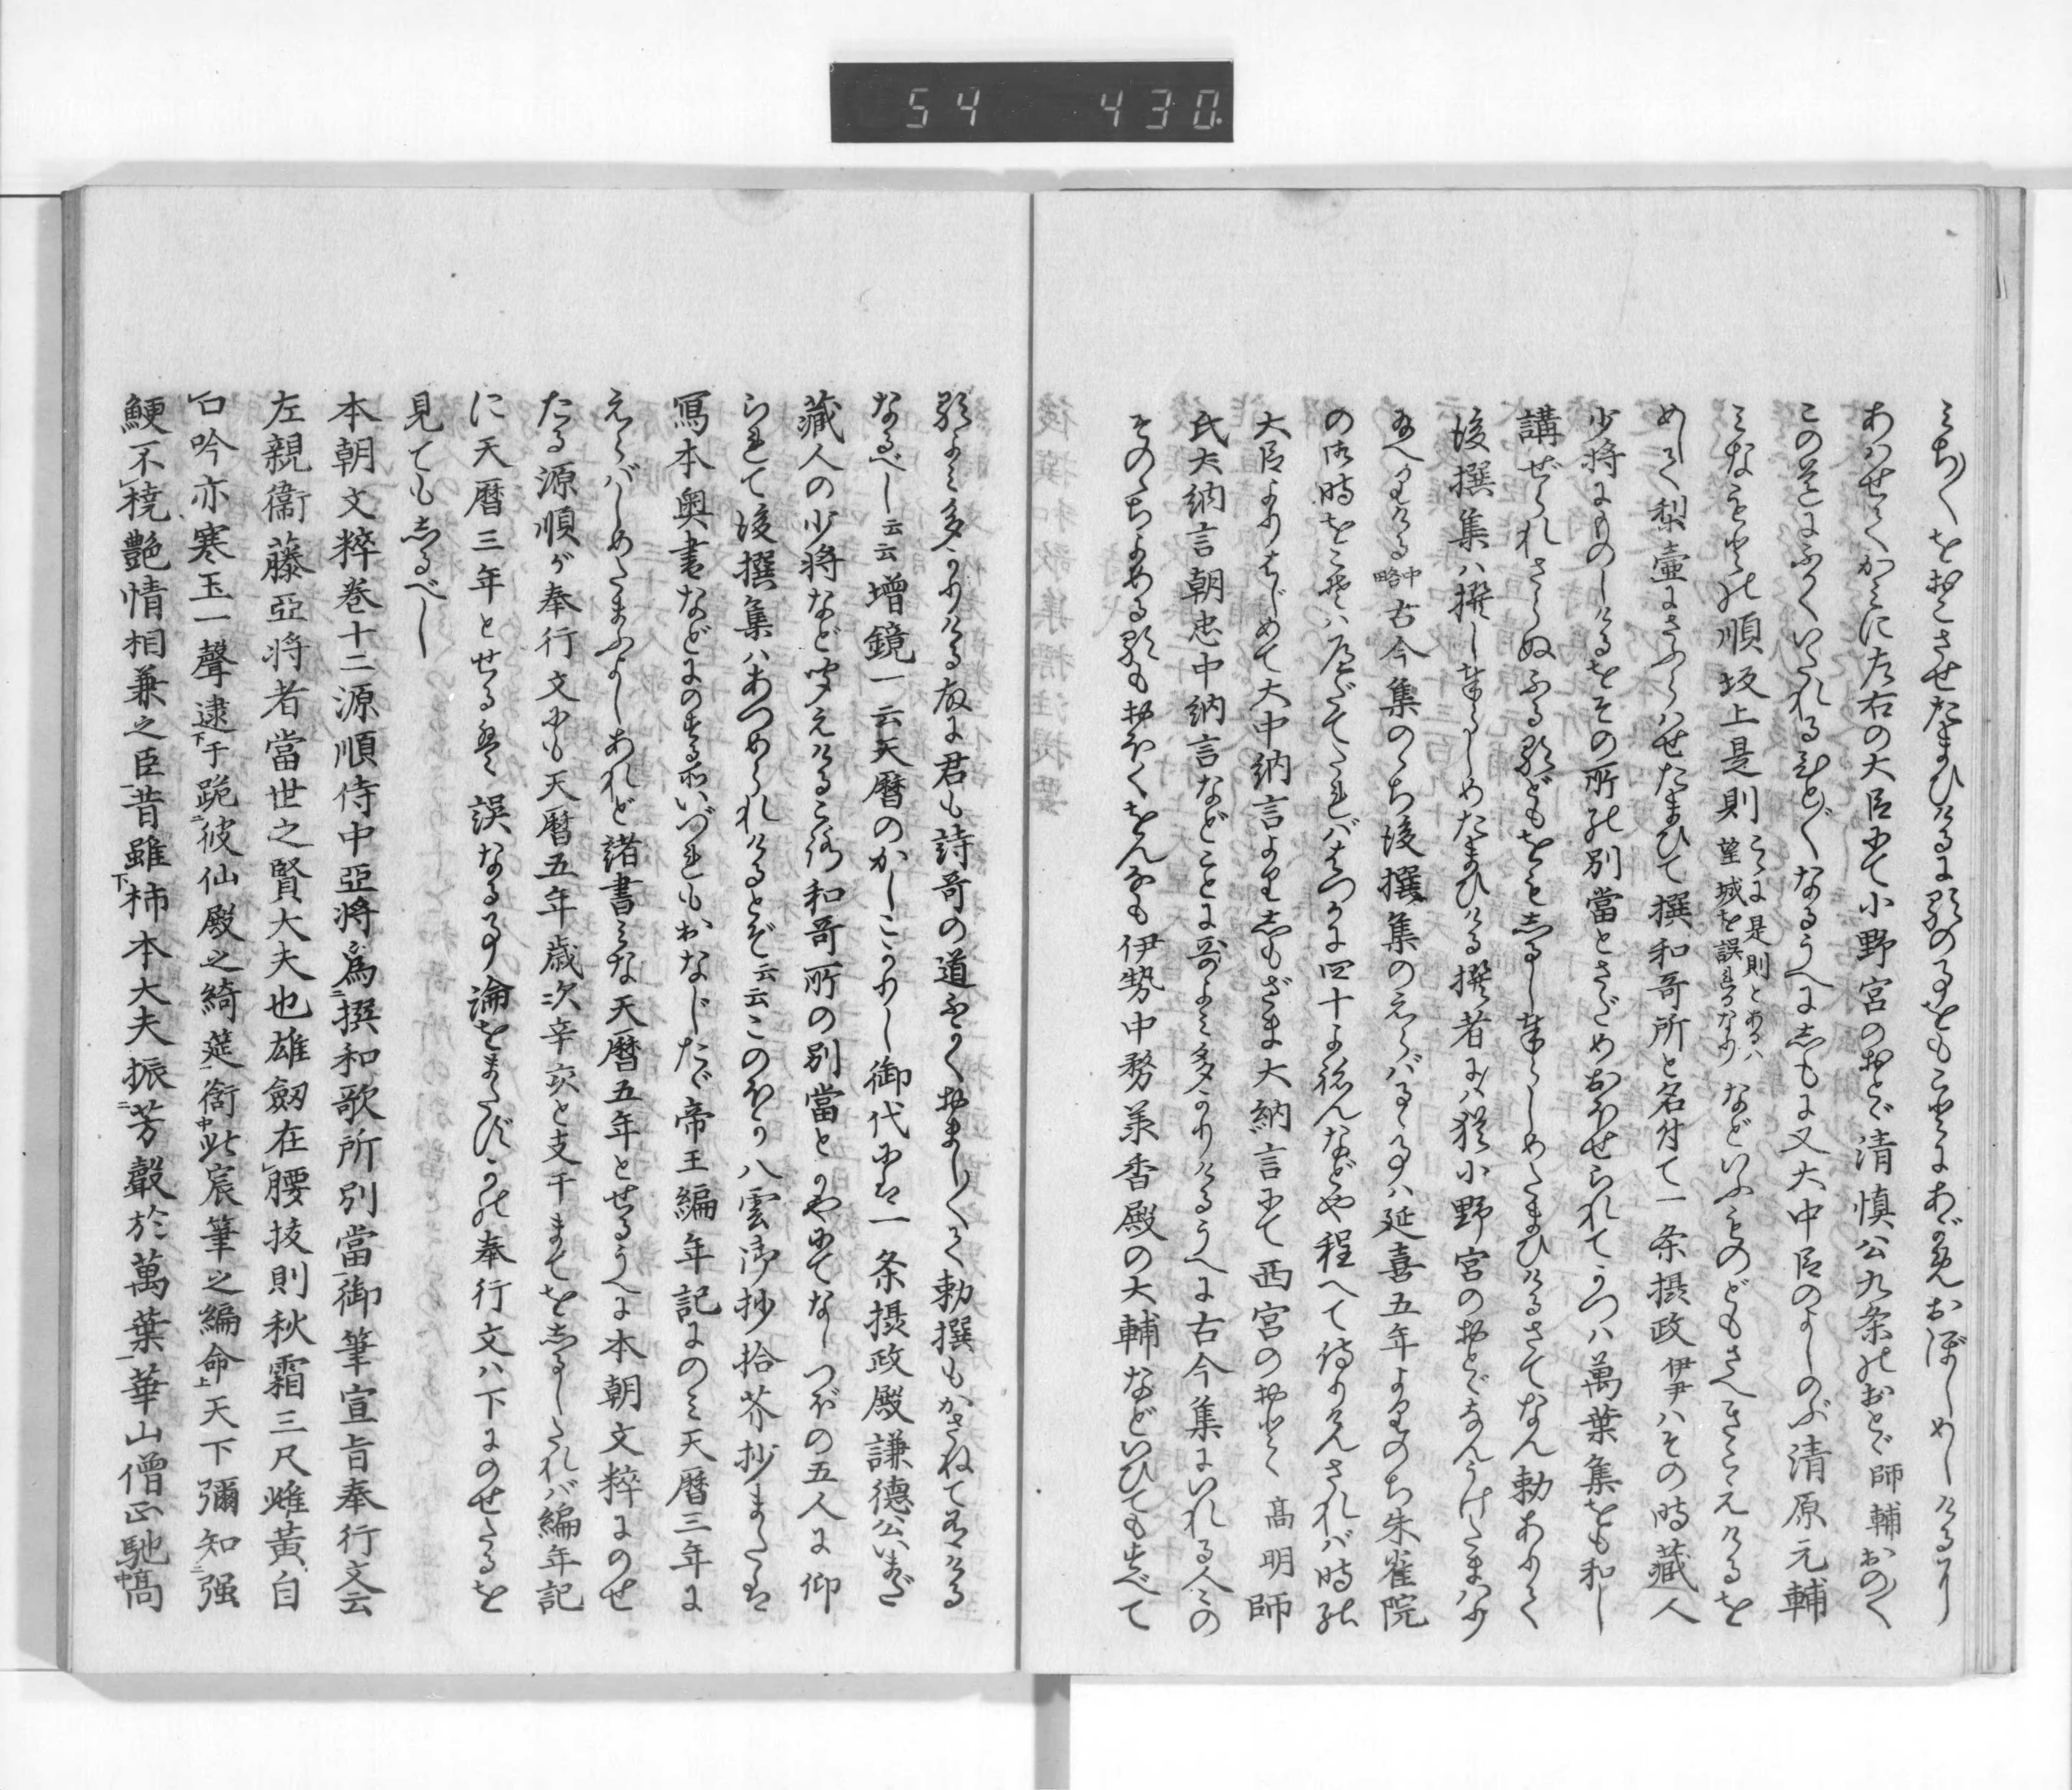 54 430
みち〳〵をおこさせたまひけるに歌の事をもことにあがめおぼしめしけるに
あはせてかみに左右の大臣にて小野宮のおとゞ清慎公九条のおとゞ師輔おの〳〵
この道にふかくいたれる人〴〵なるうへにしもに又大中臣のよしのぶ清原元輔
みなもとの順坂上是則こゝに是則とあるハ望城を誤れるなりなどいふものどもさへきこえけるを
めして梨壷にさふらハせたまひて撰和哥所と名付て一条摂政伊尹ハその時蔵人
少将にものしけるをその所の別當とさだめおほせられてかつハ萬葉集をも和し
講ぜられさらぬふる歌どもをもしるし奉らしめたまひけるさてなん勅ありて
後撰集ハ撰し奉らしめたまひける撰者にハ猶小野宮のおとゞなんうけたまハり
給へりける中略古今集のゝち後撰集のえらバるゝ事ハ延喜五年よりのち朱雀院
の御時をこそハへだてたれバはつかに四十よねんなどや程へて侍りけんされバ時の
大臣よりはじめて大中納言よりしもざま大納言にて西宮のおとゞ高明師
氏大納言朝忠中納言などことに哥よみ多かりけるうへに古今集にいれる人々の
そのゝちよめる歌もおほくをんなも伊勢中務承香殿の大輔などいひてもすべて
歌よみ多かりける故に君も詩哥の道ふかくおまし〳〵て勅撰もかさねて有ける
なるべし云云増鏡一云天暦のかしこかりし御代にも一条摂政殿謙徳公いまだ
蔵人の少将など聞えけるころ和哥所の別當とかやにてなしつぼの五人に仰
られて後撰集ハあつめられけるとぞ云云このほか八雲御抄拾芥抄またも
寫本奥書などにのする所いづれもおなじたゞ帝王編年記にのミ天暦三年に
えらバしめたまふよしあれど諸書みな天暦五年とせるうへに本朝文粹にのせ
たる源順が奉行文にも天暦五年歳次辛亥と支干まてをしるしたれバ編年記
に天暦三年とせるハ誤なる事論をまたずかの奉行文ハ下にのせたるを
見てもしるべし
本朝文粹巻十二源順侍中亞将為撰和歌所別當御筆宣旨奉行文云
左親衞藤亞将者當世之賢大夫也雄劔在腰抜則秋霜三尺雌黄自
口吟亦寒玉一聲逮于跪彼仙殿之綺筵銜此宸筆之編命天下彌知强
鯁不撓艶情相兼之臣昔雖柿本大夫振芳聲於萬葉華山僧正馳高